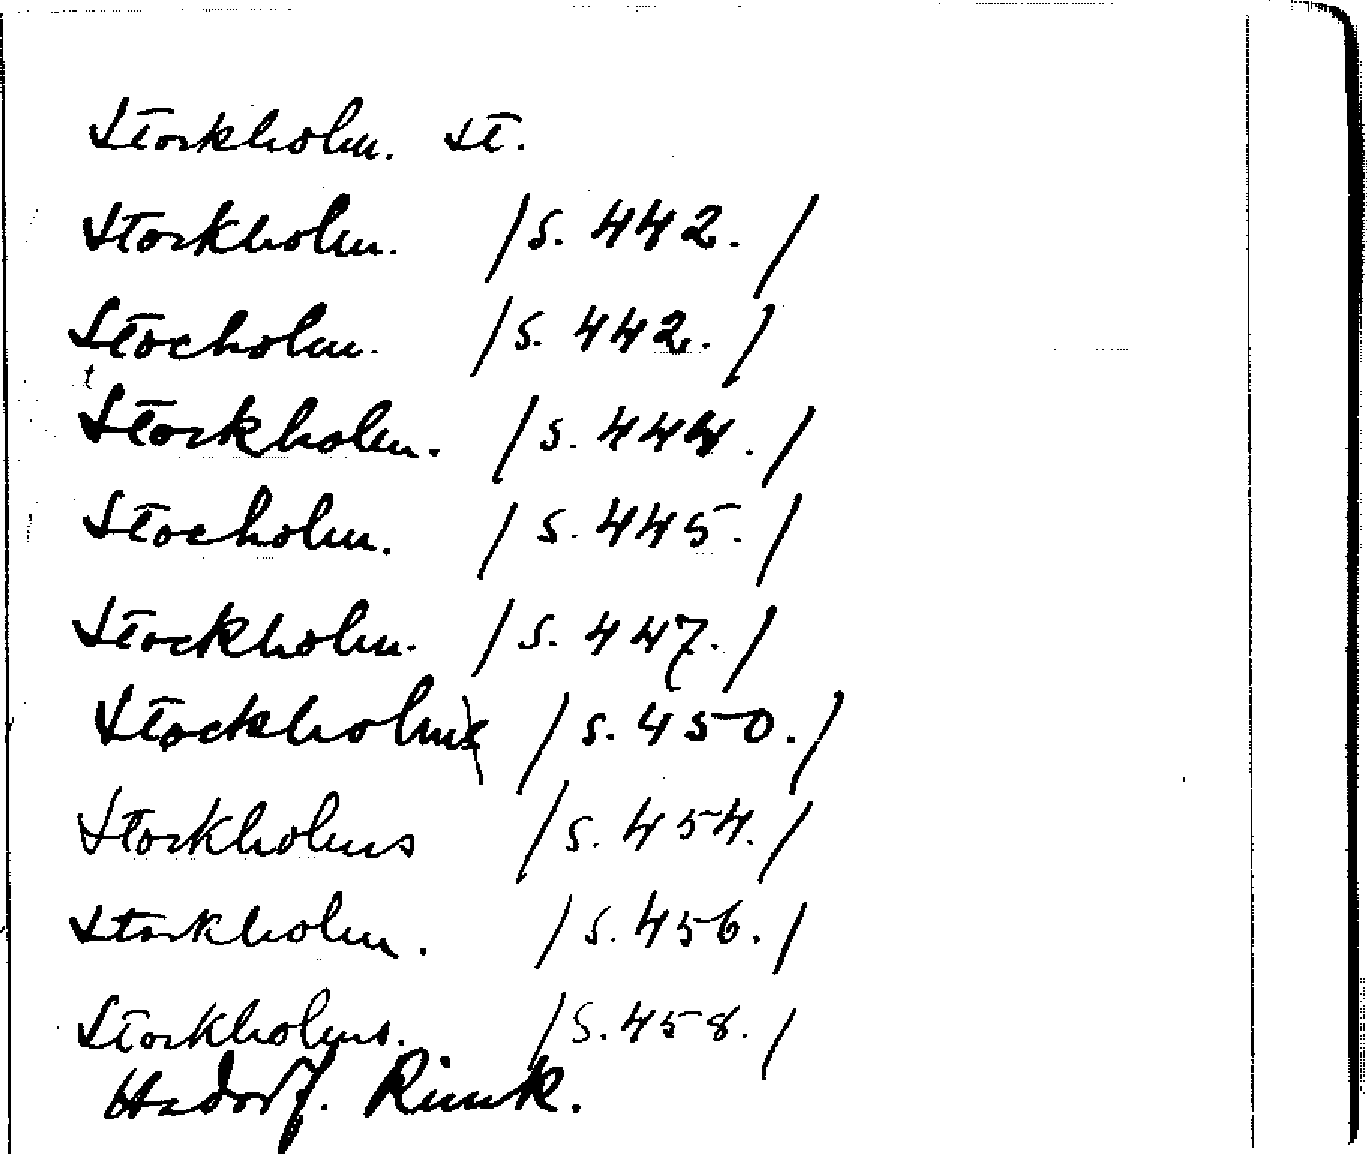 Storkholm. St.
Storkholm. /S. 442./
Stocholm. /S. 442./
t
Storkholm. /S. 444./
Stocholm. /S. 445./
Stockholm. /S. 447./
Stockholms /S. 450./
Storkholms /S. 454./
Storkholm. /S. 456./
Storkholms. /S. 458./
Rimk.